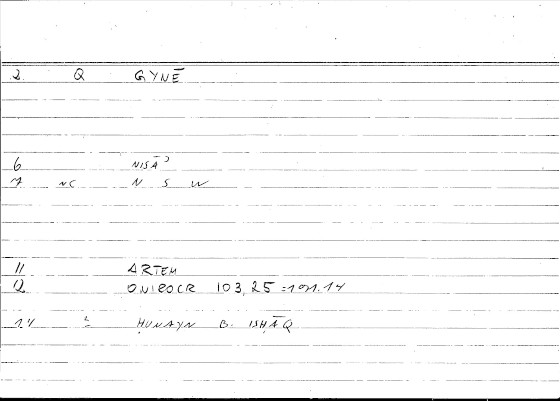 2 Q GYNĒ
6 NISĀʾ
7 NC N S W
11 ARTEM
12 ONIROCR 103,25 =191.14
14 ḤUNAYN B. ISḤĀQ